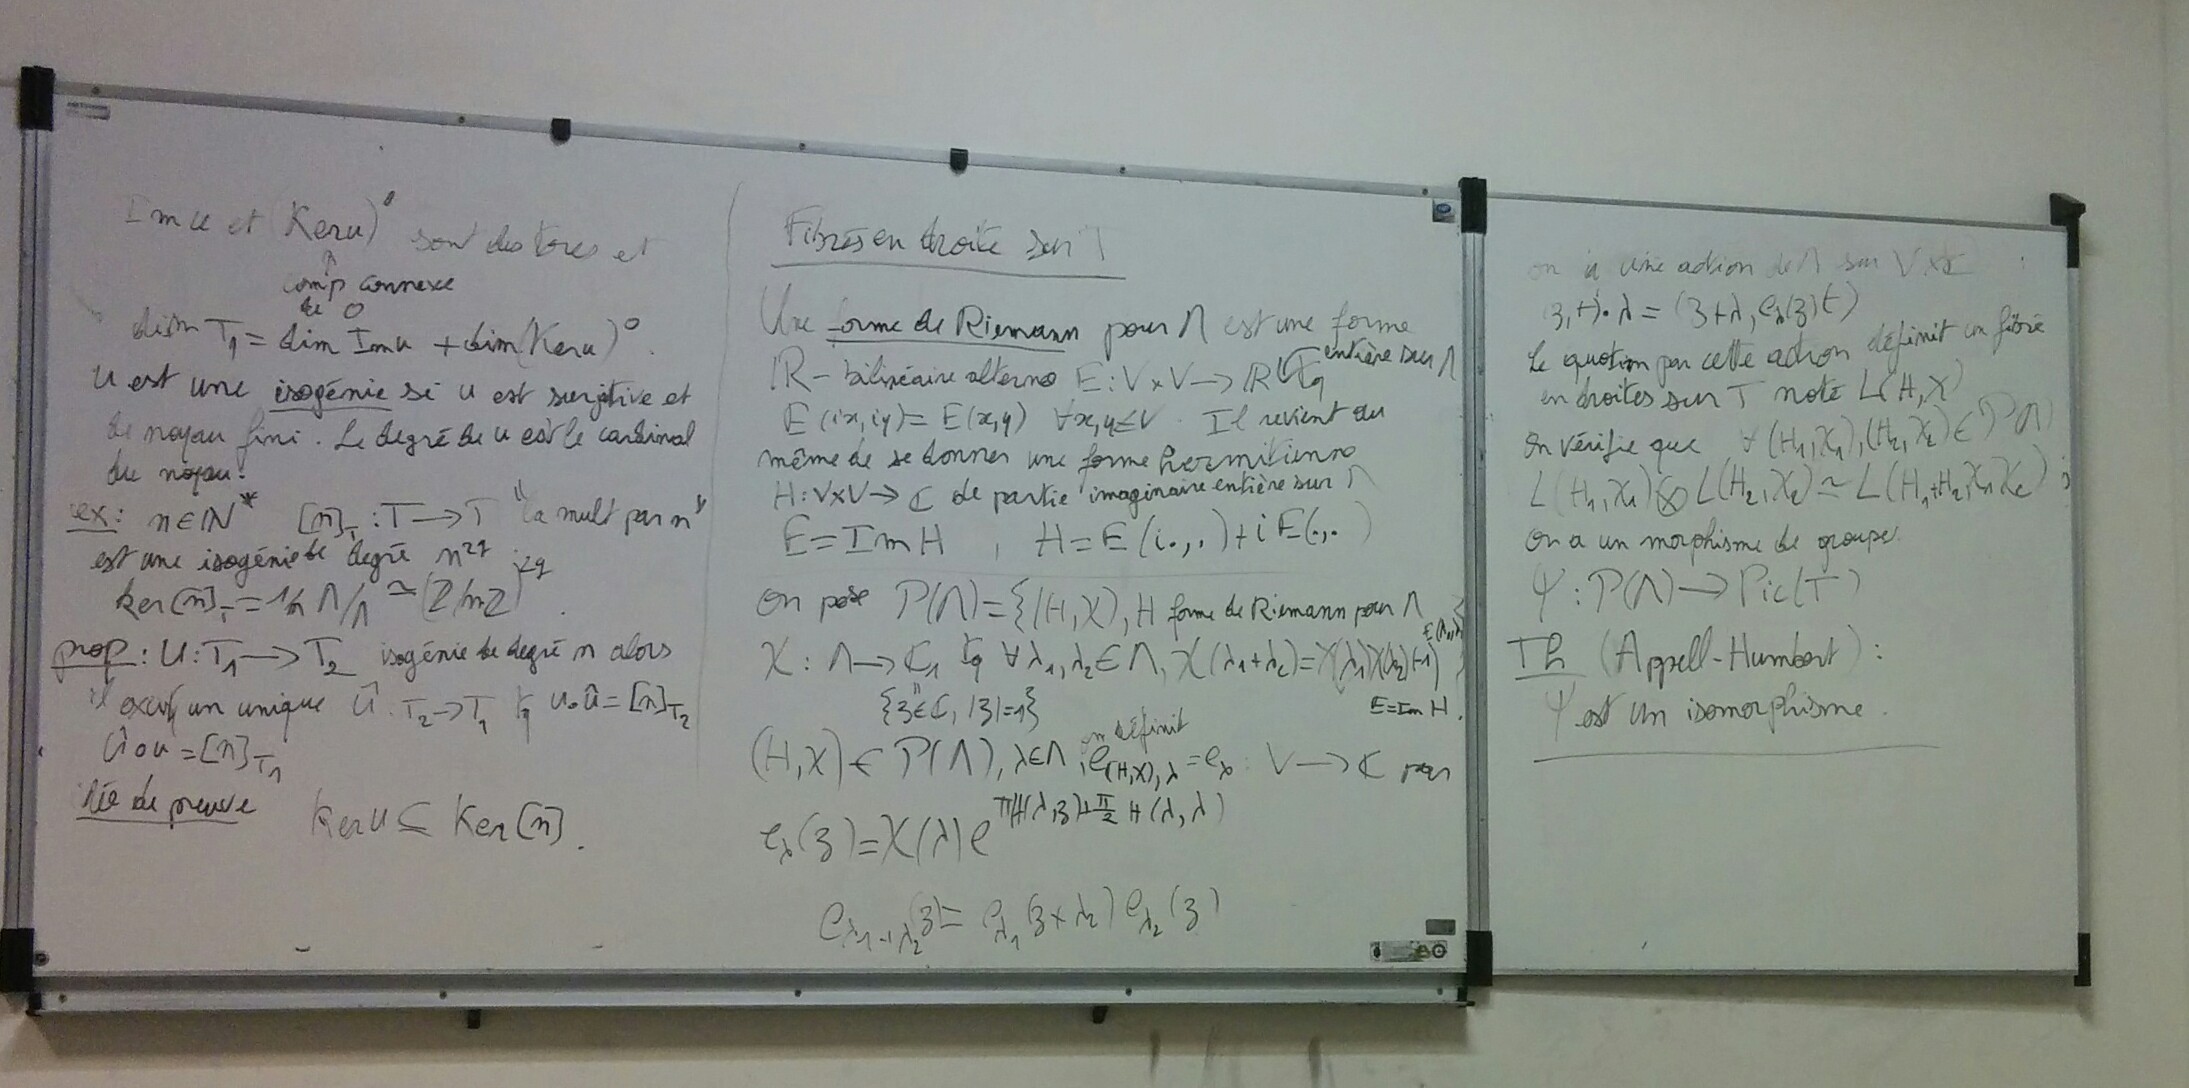 Im u et (Ker u)⁰ sont des tores et
↑
comp connexe
de 0
dim T₁ = dim Im u + dim(Ker u)⁰.
u est une isogénie si u est surjective et
de noyau fini. Le degré de u est le cardinal
du noyau.
ex: n∈ℕ* [n]_T : T → T "la mult par n"
est une isogénie de degré n^{2g}
ker[n]_T = 1/n Λ/Λ ≃ (Z/nZ)^{2g}.
prop: u: T₁ → T₂ isogénie de degré n alors
il existe un unique û: T₂→T₁ tq u∘û = [n]_{T₂}
û∘u = [n]_{T₁}
idée de preuve Ker u ⊆ Ker[n].
Fibrés en droite sur T
Une forme de Riemann pour Λ est une forme
ℝ-bilinéaire alterne E: V×V → ℝ tq entière sur Λ
E(ix,iy) = E(x,y) ∀x,y∈V. Il revient au
même de se donner une forme hermitienne
H: V×V → ℂ de partie imaginaire entière sur Λ
E = Im H , H = E(i.,.) + iE(.,.)
on pose P(Λ) = {(H,χ), H forme de Riemann pour Λ
χ: Λ → ℂ₁ tq ∀ λ₁,λ₂∈Λ, χ(λ₁+λ₂) = χ(λ₁)χ(λ₂)(-1)^{E(λ₁,λ₂)}}
{z∈ℂ, |z|=1} E = Im H.
(H,χ) ∈ P(Λ), λ∈Λ, on définit e_{(H,χ),λ} = e_λ : V → ℂ par
e_λ(z) = χ(λ) e^{πH(λ,z)+π/2 H(λ,λ)}
e_{λ₁+λ₂}(z) = e_{λ₁}(z+λ₂) e_{λ₂}(z)
on a une action de Λ sur V×ℂ :
(z,t)·λ = (z+λ, e_λ(z)t)
Le quotien par cette action définit un fibré
en droites sur T noté L(H,χ)
on vérifie que ∀ (H₁,χ₁),(H₂,χ₂) ∈ P(Λ)
L(H₁,χ₁) ⊗ L(H₂,χ₂) ≃ L(H₁+H₂,χ₁χ₂) ;
on a un morphisme de groupe
Ψ : P(Λ) → Pic(T)
Th (Appell-Humbert) :
Ψ est un isomorphisme.